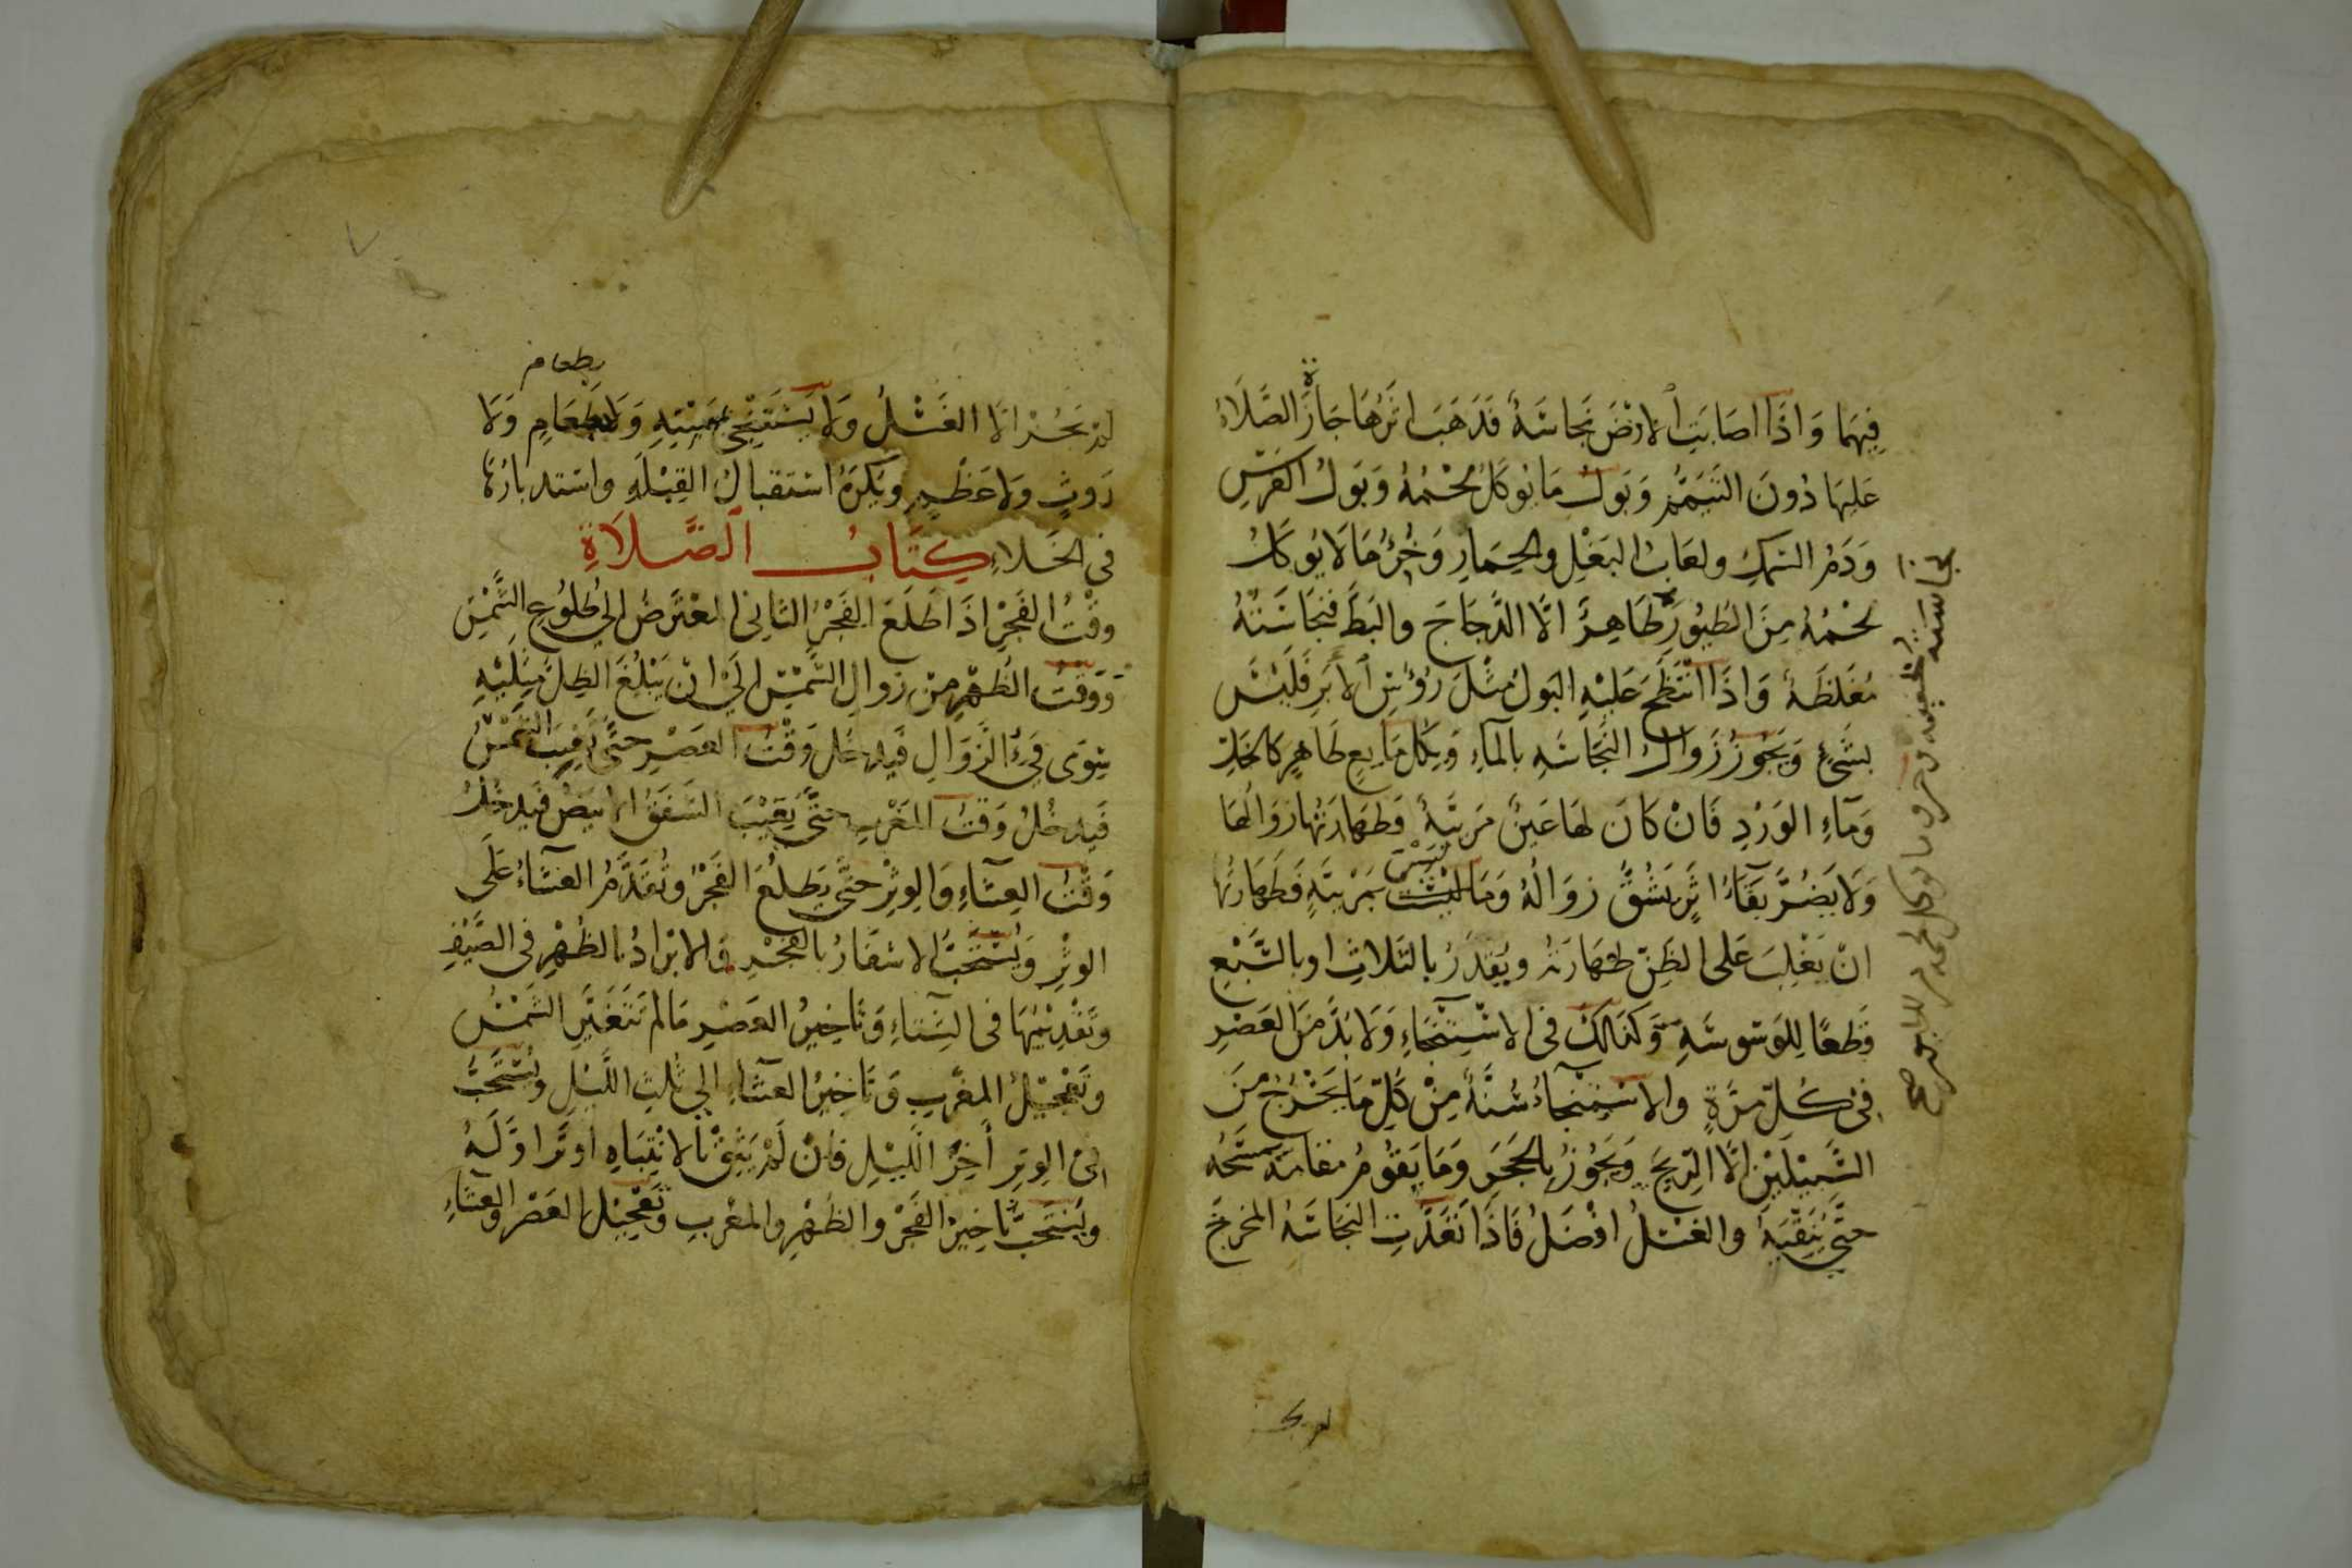 فِيهِمَا وَاِذَا اصَابَتِ الارْضَ نَجاسَةٌ فَذَهَبَ اثَرُهَا جَازَةِ الصَّلَاةُ
عَلِيهَا دُونَ التَّيَمُّمِ وَبَولُ مَا يُوكَلُ لَحْمُهُ وَبَولُ الفَرَسِ
وَدَمُ السَّمَكِ ولعَابُ البَغْلِ والحِمَارِ وَخُرْؤُ مَا لَا يُوكَلُ
لحْمُهُ مِنَ الطُيُورِ طَاهِرٌ الَّا الدَّجَاجَ والبَطَّ فنَجَاسَتُهُ
مُغَلظَةٌ وَاذَا انْتَضَحَ عَلَيْهِ البَولُ مثْلَ رُؤُسِ الأبَرِ فَلَيْسَ
بشَئٍ وَيَجُوزُ زَوالُ النَّجَاسَةِ بالمآءِ وَبِكُلِ مَايعٍ طَاهِرٍ كَالخَلِّ
وَمآءِ الوَرْدِ فَانْ كَانَ لهَا عَينٌ مَرئيَّةٌ فَطهَارَتُهَا زوَالُهَا
وَلَا يَضُرُّ بَقَآءُ اثَرٍ يَشُقُّ زوَالُهُ وَمَا لَيْسَتْ لَيْسَ بمَرْئيَّةٍ فَطَهَارتُهَا
انْ يَغْلِبَ عَلى الظَنِّ طهَارَتُهُ ويُقدَرُ بالثَلاثِ اوبالسَّبْعِ
قَطعًا لِلوَسْوسَةِ وَكذَالكَ فى الاسْتِنْجَاءِ وَلَا بُدَّ مِنَ العَصْرِ
فى كُلّ مرَّةٍ والاسْتِنْجَآءُ سُنَّةٌ مِنْ كُلِّ مَا يَخْرُجُ منَ
السَّبِيْلَيْنِ الَّا الرّيحَ وَيَجُوزُ بِالحَجَرِ وَمَا يَقُومُ مقامَهُ يمسَحُهُ
حتَّى يُنَقّيَهُ والغَسْلُ افْضَلُ فَاذَا تَعَدَّتِ النجَاسَةُ المخرجَ
نجاسته خفيفه وخرؤ ما يوكل لحمه من الطيور
لم يجز
بطعام
لمْ يَجُزْ الَّا الغَسْلُ وَلَا يَسْتَنْجِى بيَمِيْنِهِ وَلَا بطَعَامٍ وَلَا
رَوثٍ وَلَا عَظْمٍ وَيُكرَهُ اسْتقبالُ القِبْلَةِ واسْتدبارُهَا
فى الخَلاءِ كِتَابُ الصَّلَاةِ
وقْتُ الفَجْرِ اذَا طَلَعَ الفَجْرُ الثَانِى المعْتَرضُ الى طُلوُعِ الشَّمْسِ
وَوَقْتُ الظُهْرِ مِنْ زوَالِ الشَّمْسِ الَى انْ يَبْلُغَ الظِلُّ مِثلَيْهِ
سِوَى فَئِ الزَّوَالِ فَيدخُلُ وَقْتُ العَصْرِ حتَّى تَغيبَ الشَّمْسُ
فَيدخُلُ وَقتُ المَغْربِ حتَّى يَغيْبَ الشَفَقُ الابيَضُ فَيدخُلُ
وَقْتُ العِشَاءِ وَالوِتْرِ حتَّى يَطلُعَ الفَجْرُ وتُقَدَّمُ العشَاءُ عَلَى
الوتْرِ وَيُسْتَحَبُّ الاسْفَارُ بالفَجْرِ وَالابْرَادُ بالظُهْرِ فى الصَّيْفِ
وتَقْدِيْمُهَا فى الشتَاءِ وَتَاخيرُ العَصْرِ مَا لمْ تَتَغَيَّرِ الشَّمْسُ
وتَعْجيْلُ المغْربِ وَتَاخيرُ العشَاءِ الى ثُلثِ اللَّيْلِ ويُسْتَحَبُّ
فى الوترِ أخِرُ اللَّيْلِ فَانْ لَمْ يَثِقْ بالانْتِبَاهِ اوتَرَ اوَّلَهُ
ويُسْتَحَبُّ تاخيرُ الفَجْرِ والظُهْرِ والمغْربِ وتَعْجيْلُ العَصْرِ والعشَاءِ